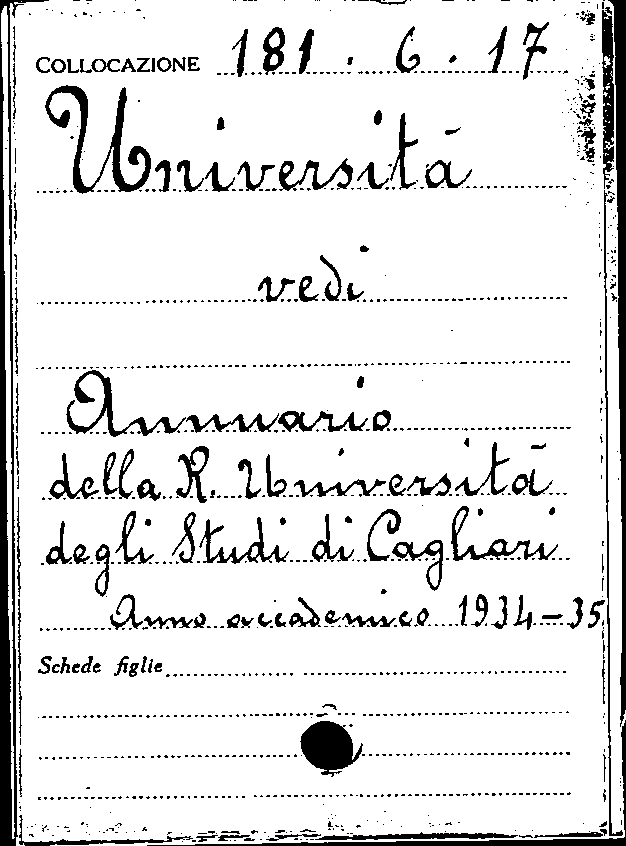 COLLOCAZIONE 181 . 6 . 17
Università
vedi
Annuario
della R. Università
degli Studi di Cagliari
Anno accademico 1934-35
Schede figlie